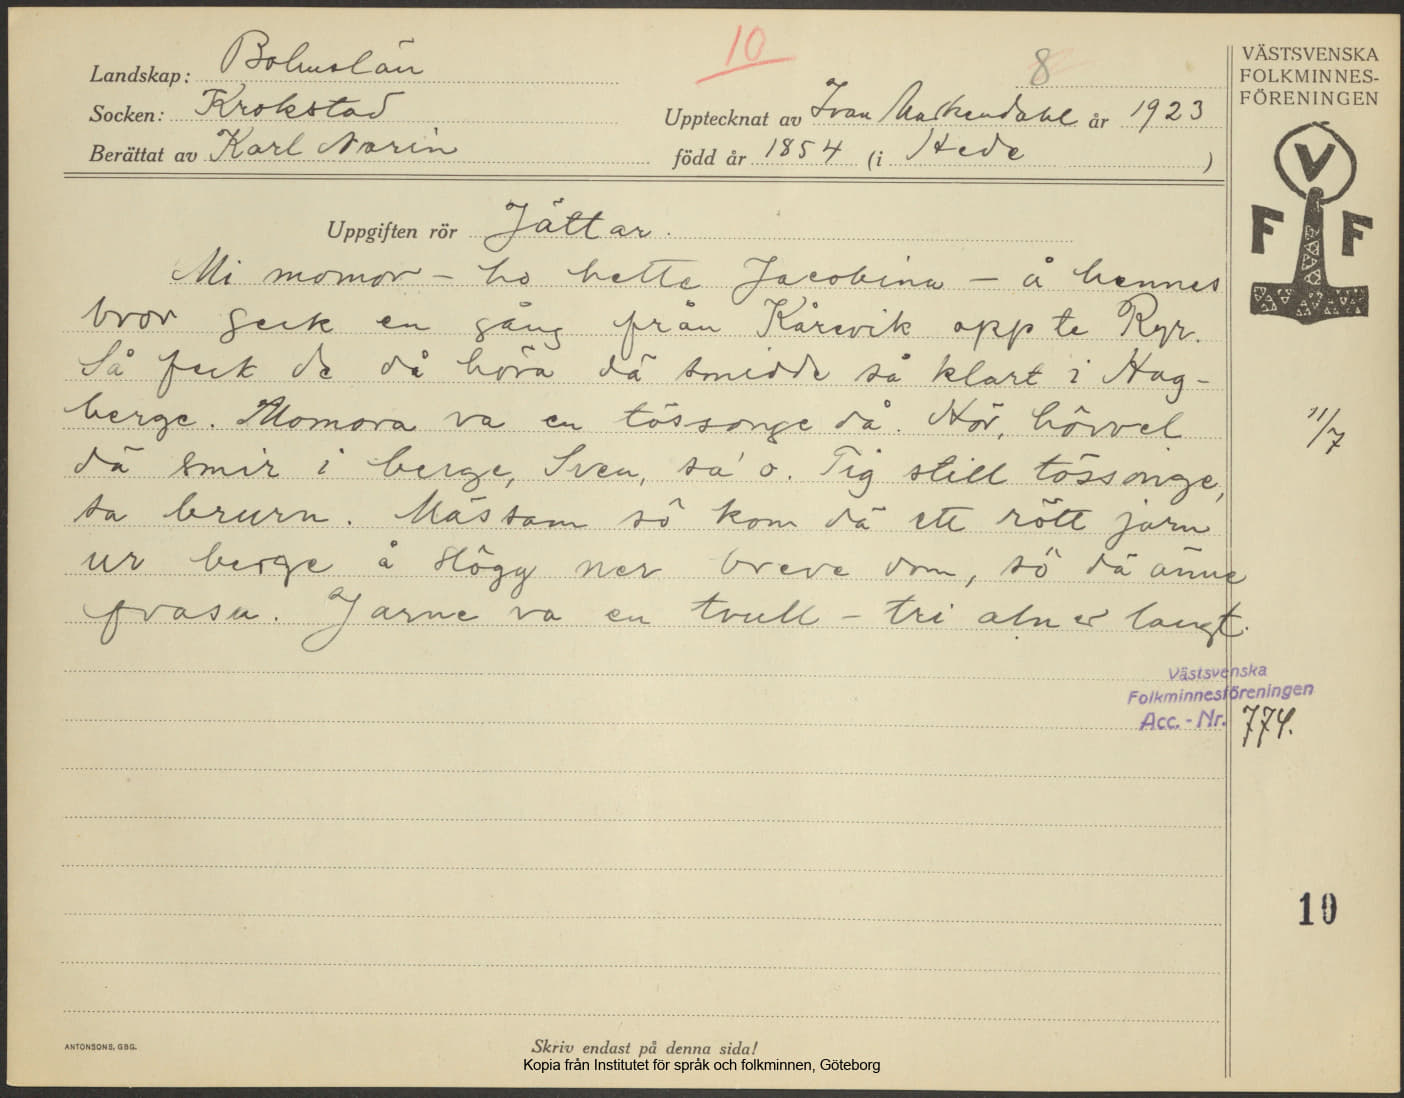 10
8
Landskap: Bohuslän
Socken: Krokstad
Upptecknat av Ivan år 1923
Berättat av Karl Norin
född år 1854 (i Hede )
VÄSTSVENSKA
FOLKMINNES-
FÖRENINGEN
V
F F
Uppgiften rör Jättar.
Mi momor – ho hette Jacobina – å hennes
bror geck en gång från Kårevik opp te Ryr.
Så feck de då höra dä smidde så klart i Hag-
berge. Momora va en tössonge då. Hör, hövvel
dä smir i berge, Sven, sa' o. Tig still tössonge,
sa brurn. Mässam sö kom dä ett rött jarn
ur berge å slögg ner breve dom, sö dä änne
fvasa. Jarne va en tvull – tri alner langt.
11/7
Västsvenska
Folkminnesföreningen
Acc. - Nr. 774.
10
ANTONSONS, GBG.
Skriv endast på denna sida!
Kopia från Institutet för språk och folkminnen, Göteborg